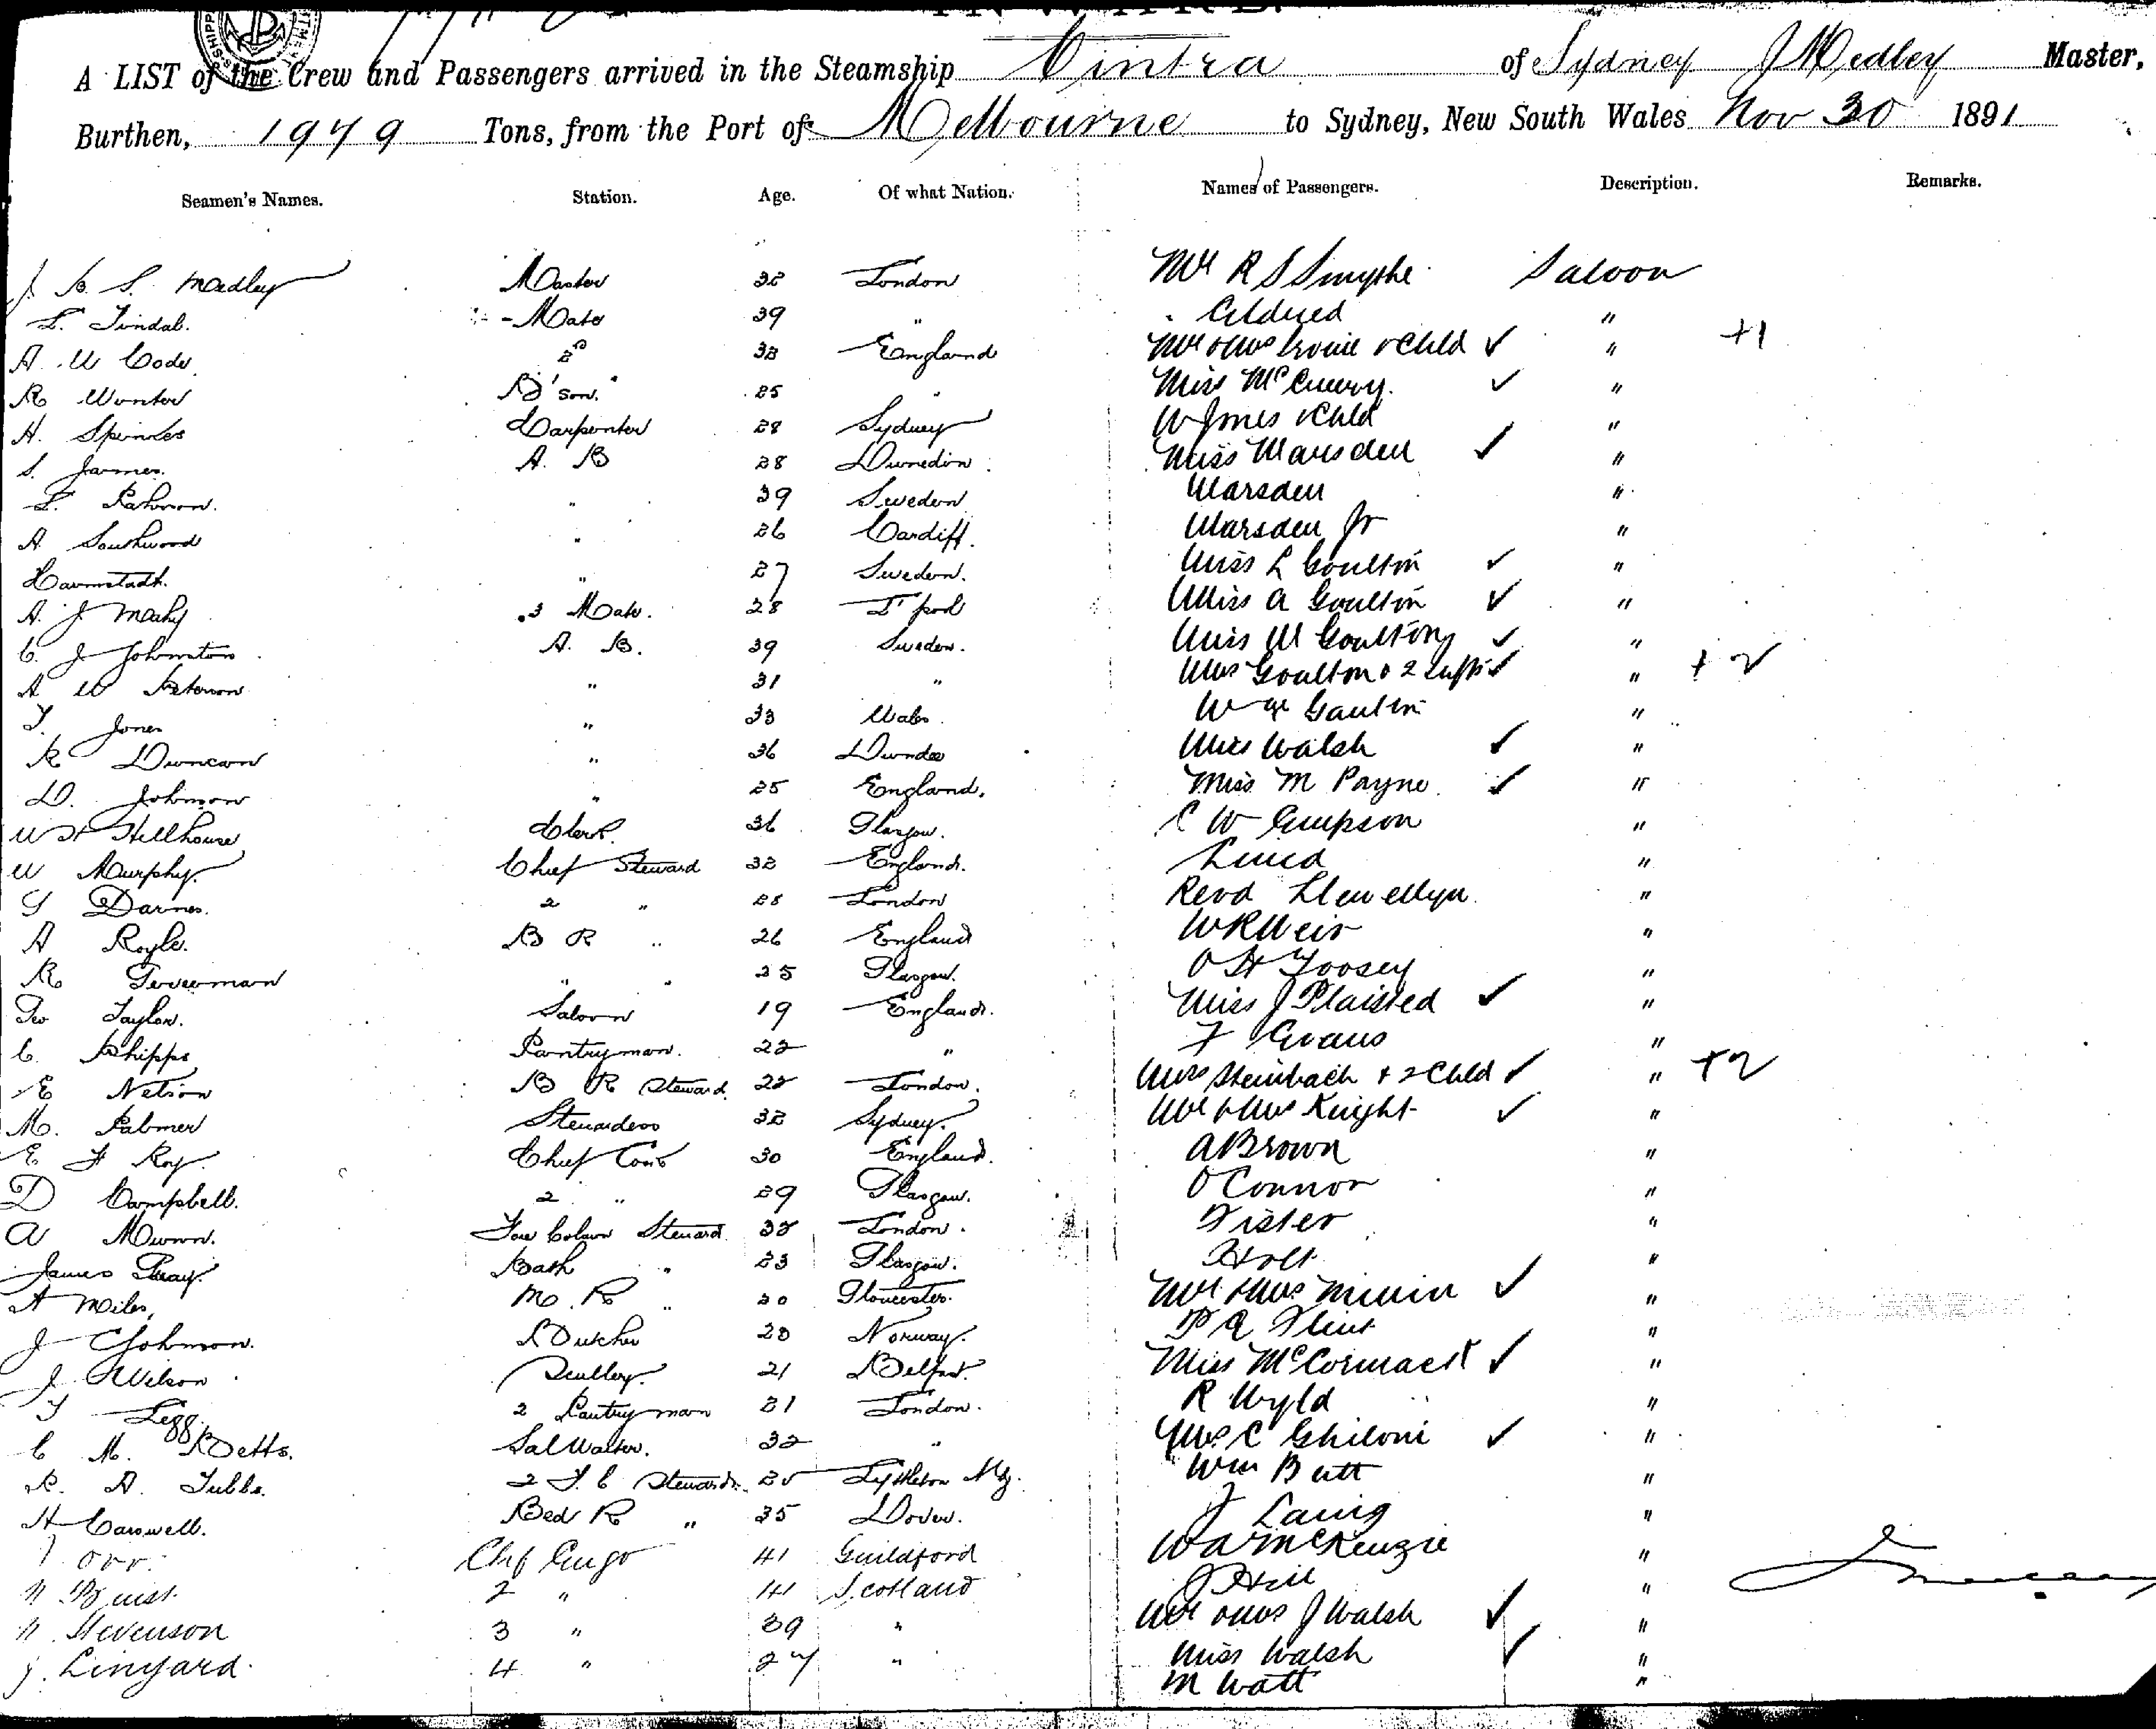 A LIST of the Crew and Passengers arrived in the Steamship Cintra of Sydney J Medley Master,
Burthen, 1979 Tons, from the Port of Melbourne to Sydney, New South Wales Nov 30 1891
Seamen's Names. Station. Age. Of what Nation. Names of Passengers. Description. Remarks.
J. B. S. Medley Master 32 London Mr R S Smythe Saloon
Tindal. Mate 39 " "
A. W Code 2nd 32 England Mr & Mrs & Child ✓ " +1
R Bo'son. 25 " Miss ✓ "
H. Carpenter 28 Sydney W Jones & Child "
S. James. A. B 28 Dunedin Miss Marsden ✓ "
" 39 Sweden Marsden "
A Southwood " 26 Cardiff. Marsden Jr "
Darmstadt. " 27 Sweden. Miss L Goulton ✓ "
A. J 3 Mate. 28 L'pool Miss A Goulton ✓ "
C. J Johnston A. B. 39 Sweden. Miss M Goulton ✓ "
A W Peterson " 31 " Mrs Goulton & 2 ✓ " + 2
T. Jones " 33 Wales. W "
R Duncan " 36 Dundee Miss Walsh ✓ "
D. Johnson " 25 England. Miss M Payne ✓ "
W H Hillhouse Clerk. 36 Glasgow. C W "
W Murphy. Chief Steward 32 England. "
2 " London Revd Llewellyn "
A Royle. B R " 26 England W R Weir "
R " " 25 Glasgow. O H Toosey "
Geo Taylor. Saloon 19 England. Miss J Plaisted ✓ "
C. Phipps Pantryman. 22 " F Evans "
E Nelson B R Steward 22 London. Mrs Steinbach + 2 Child ✓ " +2
M. Palmer Stewardess 32 Sydney. Mr & Mrs Knight ✓ "
E F Roy. Chief Cook 30 England. A Brown "
D Campbell. 2 " 29 Glasgow. O'Connor "
A Munn. Fore Steward 32 London. "
James Bath " 23 Glasgow. Holt "
A Miles, M. R " 20 Gloucester. Mr & Mrs ✓ "
J C Johnson. Butcher 20 Norway. Flint "
J Wilson Scullery. 21 Belfast. Miss McCormack ✓ "
Legg. 2 Pantryman 21 London. R Wyld "
C M. Betts. Sal Waiter. 32 " Mrs C Ghiloni ✓ "
R. A. Tubbs. 2 F. C Steward. Lyttleton NZ. Wm Butt "
H Carswell. Bed R " 35 Dover. J Laing "
Orr. Chf 41 Guildford W A McKenzie "
2 " 41 Scotland J Hill "
Stevenson 3 " 39 " Mr & Mrs J Walsh ✓ "
J. Linyard. 4 " 27 " Miss Walsh ✓ "
M Watt "